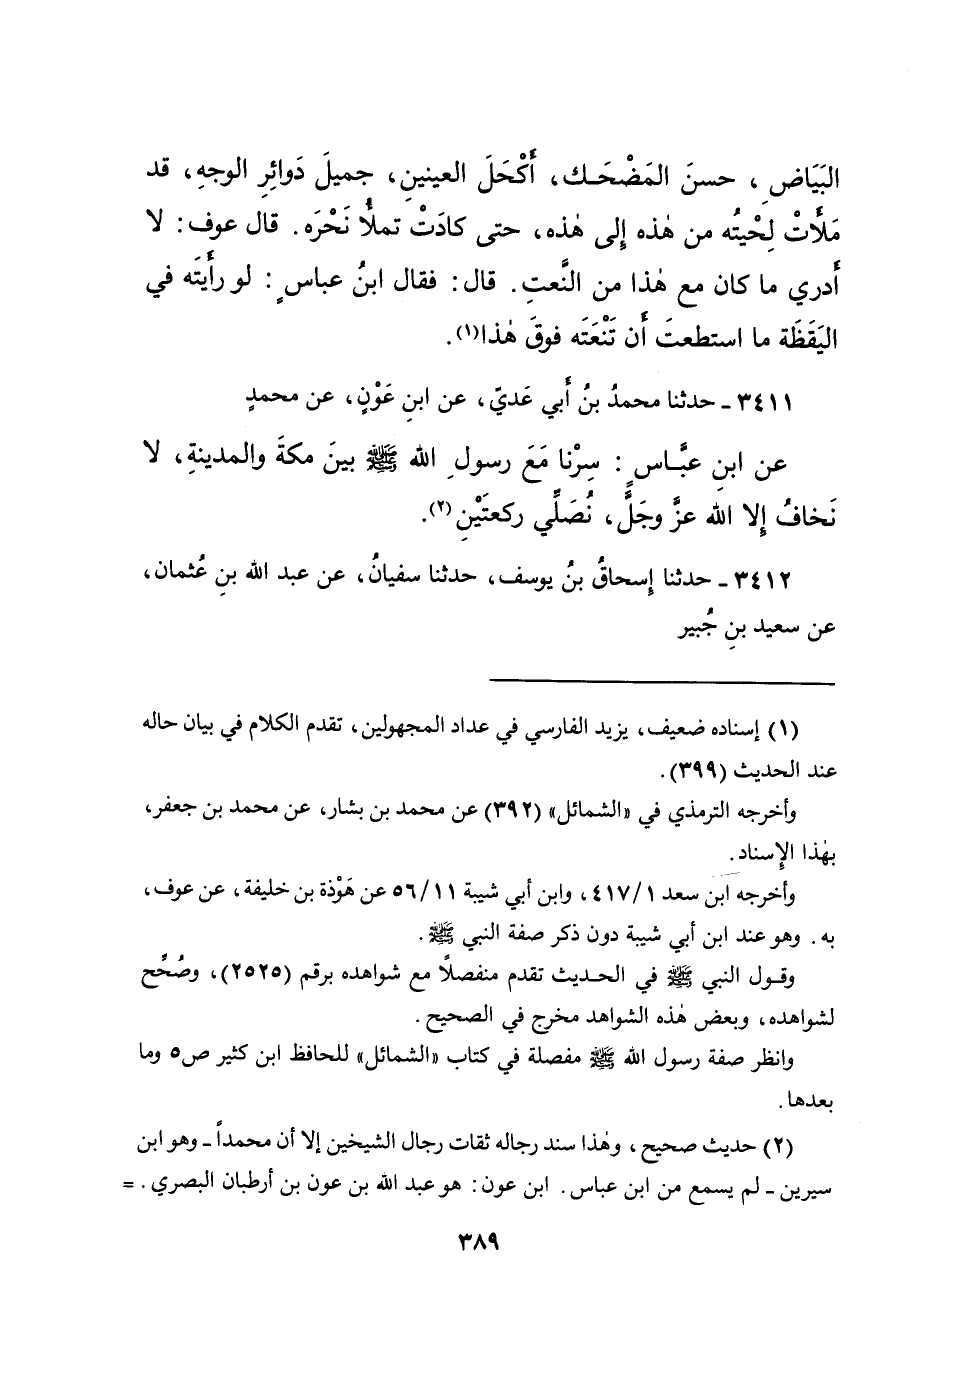 البَيَاضِ، حسنَ المَضْحَك، أَكْحَلَ العينينِ، جميلَ دَوائِرِ الوجهِ، قد
مَلَأَتْ لِحْيتُه من هٰذه إلى هٰذه، حتى كادَتْ تملأُ نَحْرَه. قال عوف: لا
أَدري ما كان مع هٰذا من النَّعتِ. قال: فقال ابنُ عباسٍ: لو رأَيتَه في
اليَقَظَة ما استطعتَ أَن تَنْعَتَه فوقَ هٰذا(١).
٣٤١١ - حدثنا محمدُ بنُ أَبي عَديّ، عن ابنِ عَوْنٍ، عن محمدٍ
عن ابنِ عبَّاسٍ: سِرْنا مَعَ رسولِ الله ﷺ بينَ مكةَ والمدينةِ، لا
نَخافُ إِلا الله عزَّ وجَلَّ، نُصَلِّي ركعتَيْنِ(٢).
٣٤١٢ - حدثنا إسحاقُ بنُ يوسف، حدثنا سفيانُ، عن عبد الله بنِ عُثمان،
عن سعيد بنِ جُبير
(١) إسناده ضعيف، يزيد الفارسي في عداد المجهولين، تقدم الكلام في بيان حاله
عند الحديث (٣٩٩).
وأخرجه الترمذي في «الشمائل» (٣٩٢) عن محمد بن بشار، عن محمد بن جعفر،
بهٰذا الإسناد.
وأخرجه ابن سعد ٤١٧/١، وابن أبي شيبة ٥٦/١١ عن هَوْذة بن خليفة، عن عوف،
به. وهو عند ابن أبي شيبة دون ذكر صفة النبي ﷺ.
وقول النبي ﷺ في الحديث تقدم منفصلاً مع شواهده برقم (٢٥٢٥)، وصُحِّح
لشواهده، وبعض هٰذه الشواهد مخرج في الصحيح.
وانظر صفة رسول الله ﷺ مفصلة في كتاب «الشمائل» للحافظ ابن كثير ص٥ وما
بعدها.
(٢) حديث صحيح، وهٰذا سند رجاله ثقات رجال الشيخين إلا أن محمداً - وهو ابن
سيرين - لم يسمع من ابن عباس. ابن عون: هو عبد الله بن عون بن أرطبان البصري. =
٣٨٩